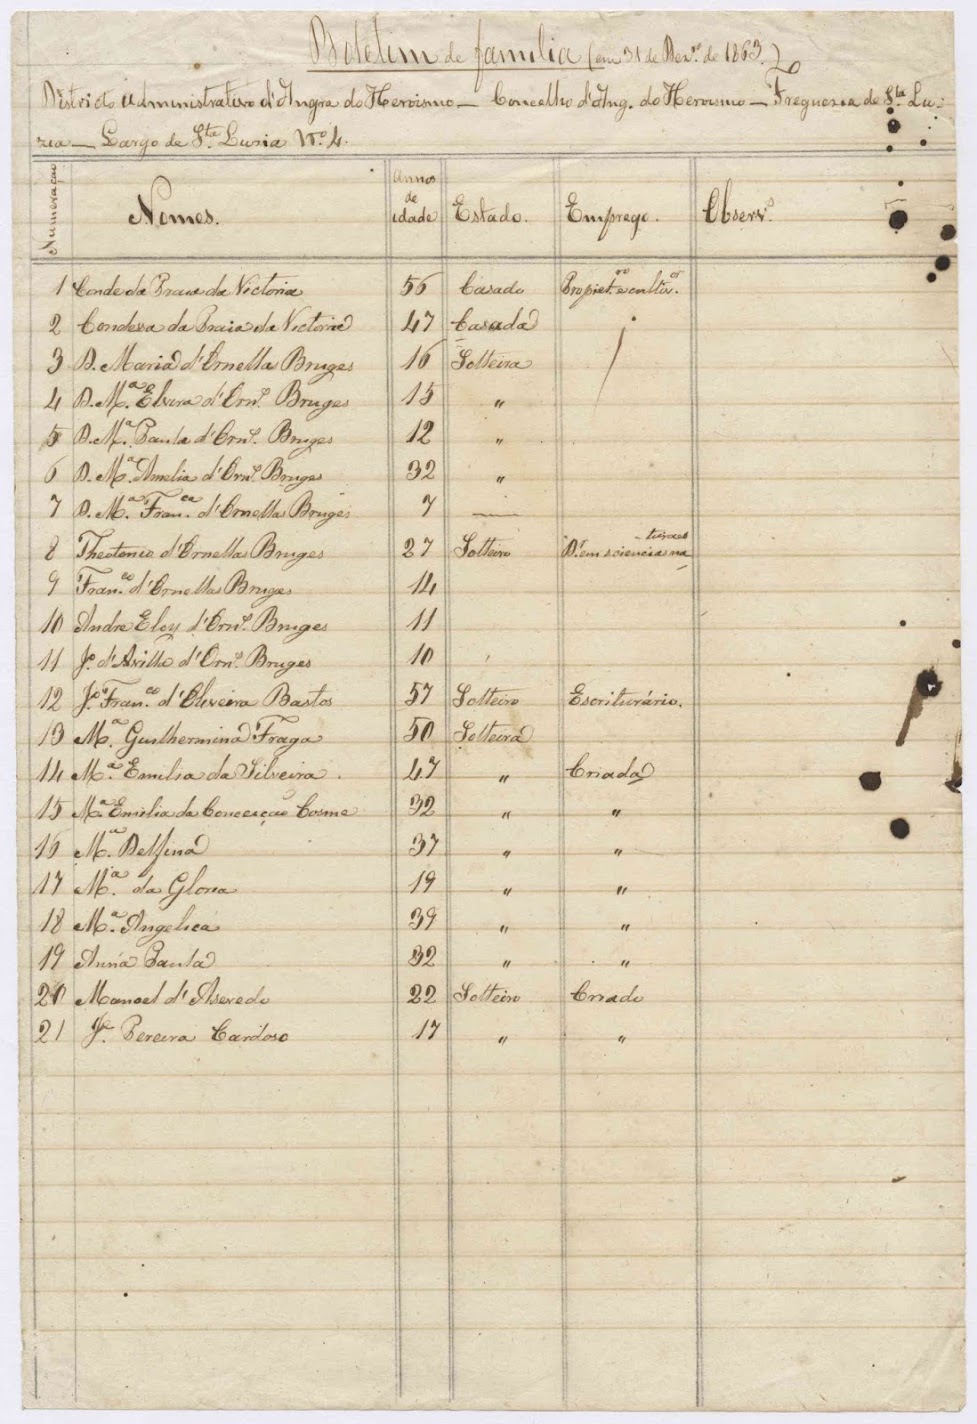 Boletim de familia (em 31 de Dezº. de 1863.)
Districto Administrativo d'Angra do Heroismo — Concelho d'Ang. do Heroismo — Freguezia de Stª. Lu-
zia — Largo de Stª. Luzia Nº. 4.
Numeração Nomes. Annos de idade Estado. Emprego. Observ.ˢ
1 Conde da Praia da Victoria 56 Casado Propiet.ʳⁱᵒ e cultiv.ᵒʳ
2 Condessa da Praia da Victoria 47 Casada
3 D. Maria d'Ornellas Bruges 16 Solteira
4 D. Mª. Elvira d'Orn.ˢ Bruges 15 "
5 D. Mª. Paula d'Orn.ˢ Bruges 12 "
6 D. Mª. Amelia d'Orn.ˢ Bruges 32 "
7 D. Mª. Fran.ᶜᵃ d'Ornellas Bruges 7 —
8 Theotonio d'Ornellas Bruges 27 Solteiro Dʳ. em sciencias na-turaes
9 Fran.ᶜᵒ d'Ornellas Bruges 14
10 Andre Eloy d'Orn.ˢ Bruges 11
11 Jº. d'Avilla d'Orn.ˢ Bruges 10
12 Jº. Fran.ᶜᵒ d'Oliveira Bastos 57 Solteiro Escriturário.
13 Mª. Guilhermina Fraga 50 Solteira
14 Mª. Emilia da Silveira 47 " Criada
15 Mª. Emilia da Conceição Cosme 32 " "
16 Mª. Delfina 37 " "
17 Mª. da Gloria 19 " "
18 Mª. Angelica 39 " "
19 Anna Paula 32 " "
20 Manoel d'Asevedo 22 Solteiro Criado
21 Jº. Pereira Cardoso 17 " "